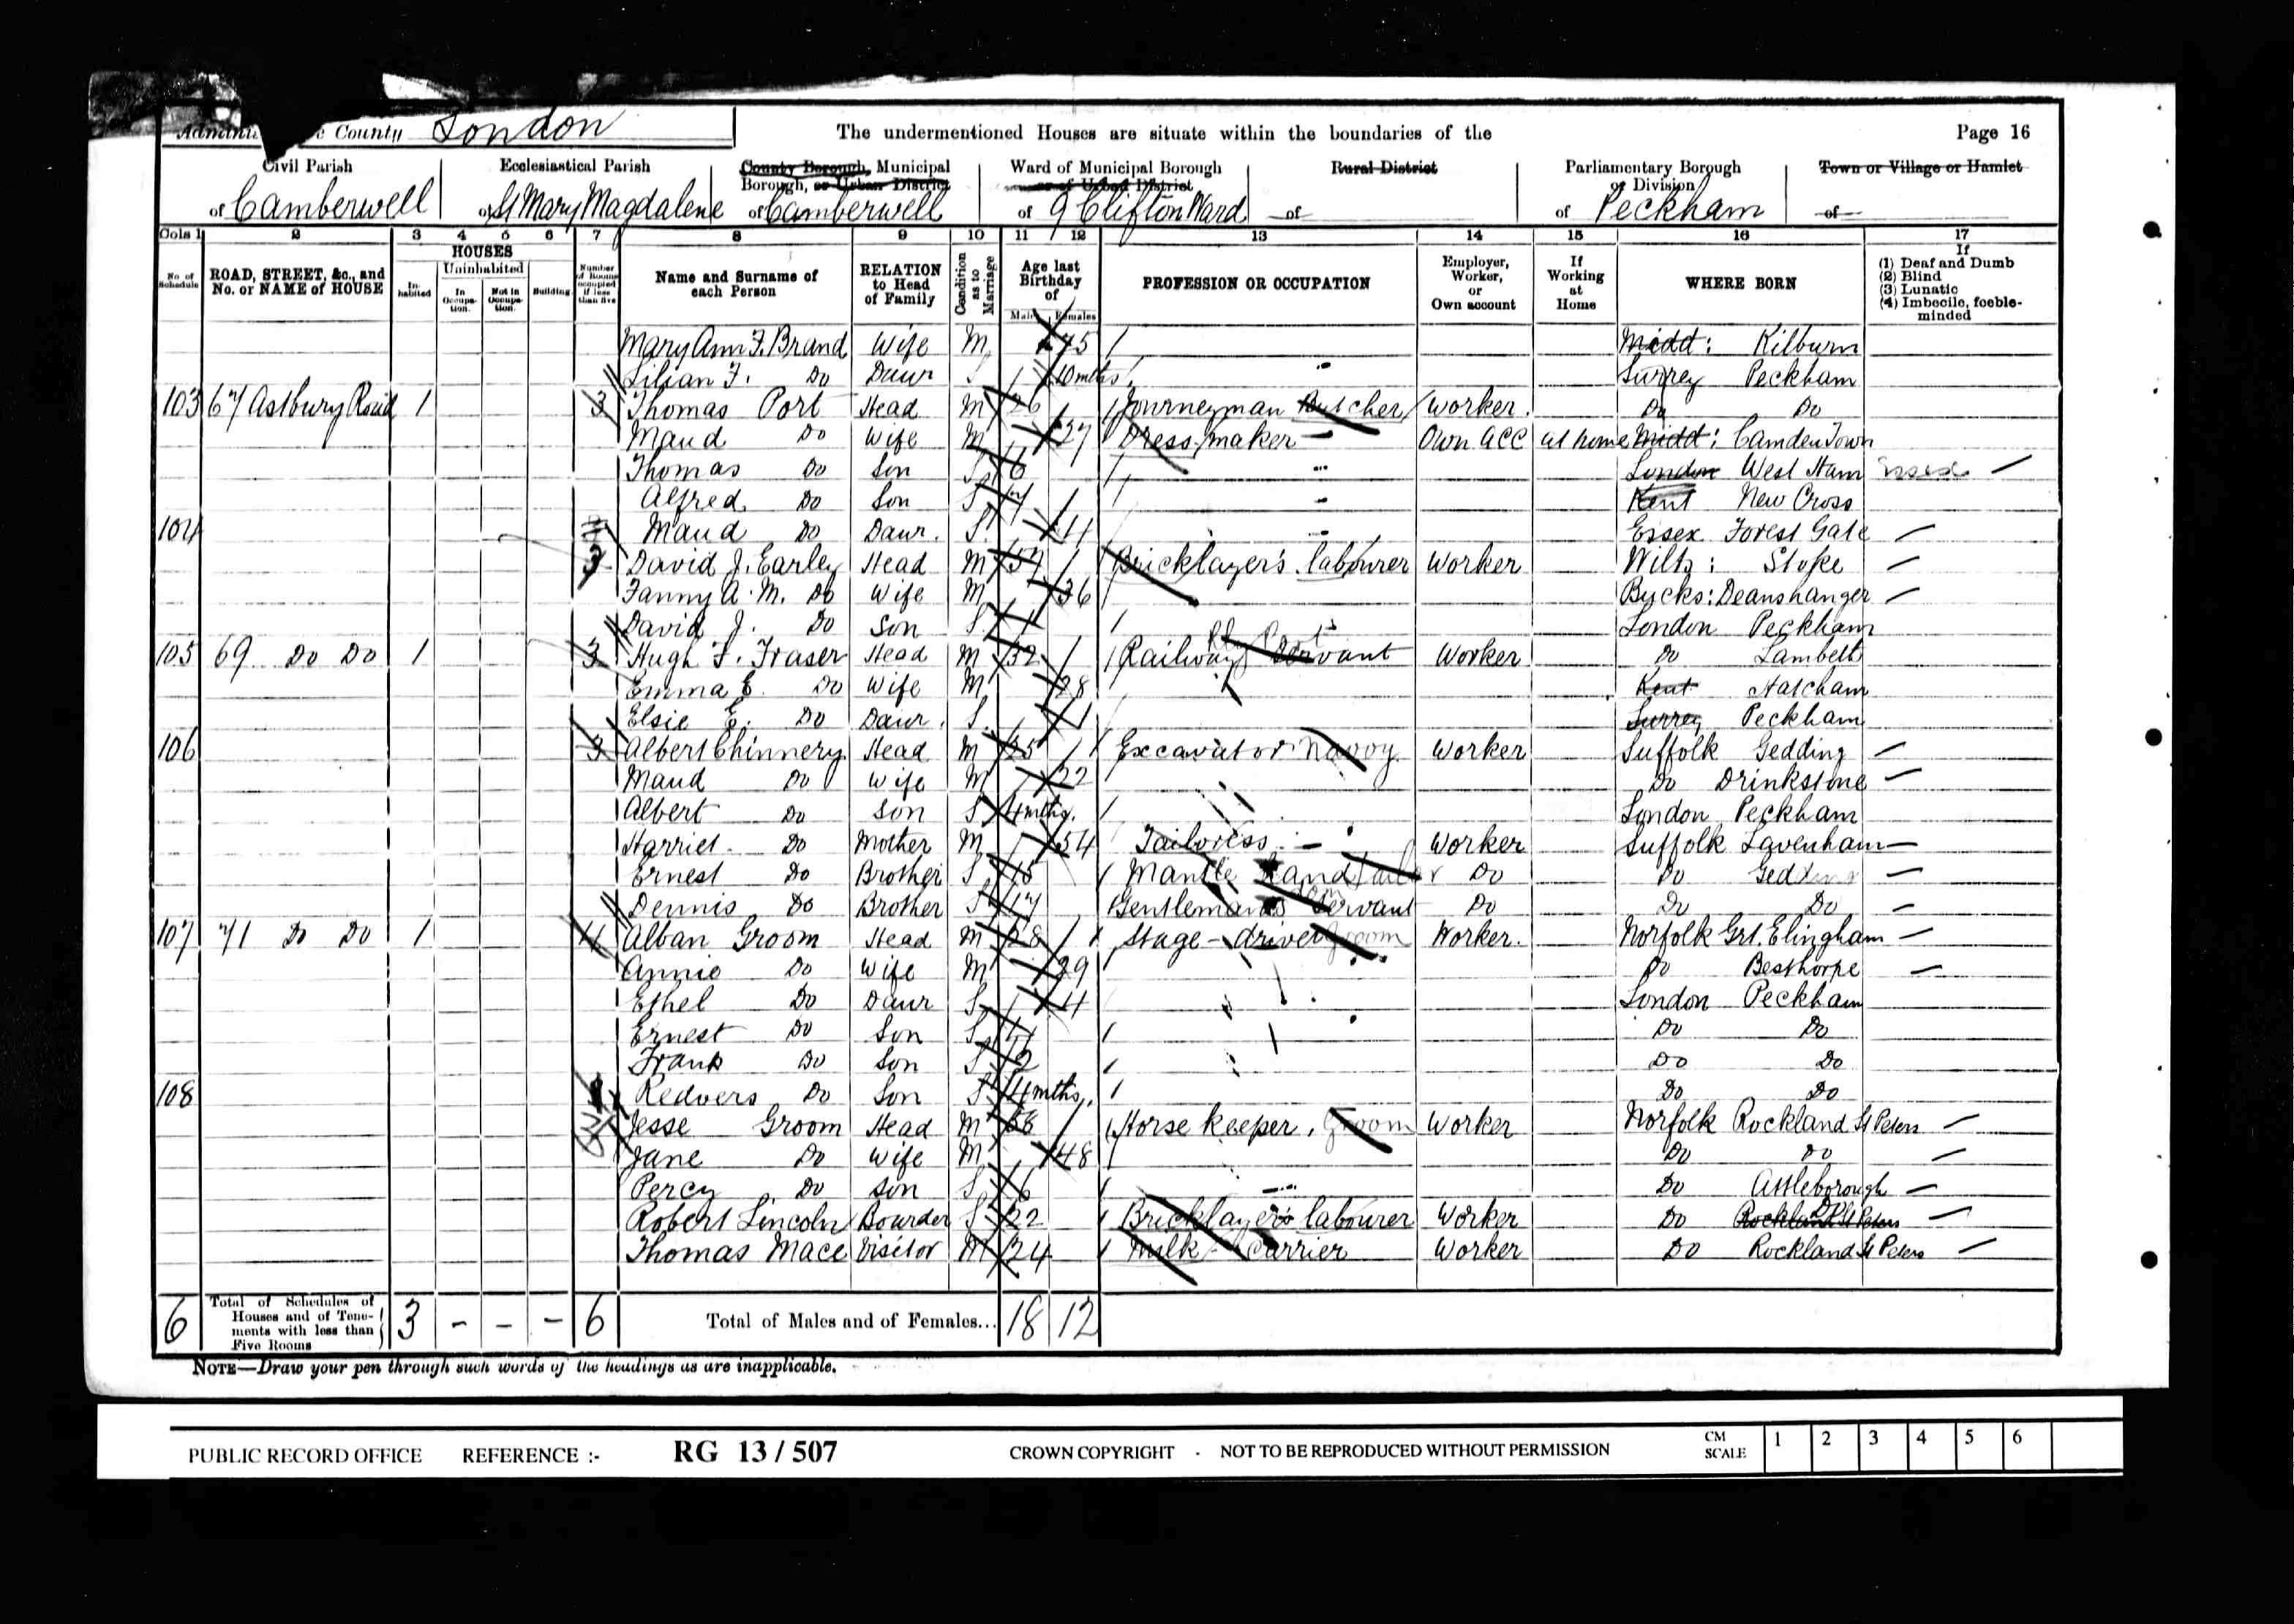 Administrative County London The undermentioned Houses are situate within the boundaries of the Page 16
Civil Parish Ecclesiastical Parish County Borough, Municipal Borough, or Urban District Ward of Municipal Borough or of Urban District Rural District Parliamentary Borough or Division Town or Village or Hamlet
of Camberwell of St Mary Magdalene of Camberwell of 9 Clifton Ward of of Peckham of
Cols 1 2 3 4 5 6 7 8 9 10 11 12 13 14 15 16 17
No. of Schedule ROAD, STREET, &c., and No. or NAME of HOUSE HOUSES Inhabited Uninhabited In Occupation. Not in Occupation. Building. Number of Rooms occupied if less than five Name and Surname of each Person RELATION to Head of Family Condition as to Marriage Age last Birthday of Males Females PROFESSION OR OCCUPATION Employer, Worker, or Own account If Working at Home WHERE BORN If (1) Deaf and Dumb (2) Blind (3) Lunatic (4) Imbecile, feeble-minded
Mary Ann F. Brand Wife M 45 Midd: Kilburn
Lilian F. Do Daur S 10 mths Surrey Peckham
103 67 Astbury Road 1 3 Thomas Port Head M 26 Journeyman Butcher Worker Do Do
Maud Do Wife M 27 Dress maker Own acc at home Midd: Camden Town
Thomas Do Son S 6 London West Ham Essex
Alfred Do Son S Kent New Cross
104 Maud Do Daur. S. Essex Forest Gate
3 David J. Earley Head M Bricklayer's labourer Worker Wilts: Stoke
Fanny A. M. Do Wife M 36 Bucks: Deanshanger
David J. Do Son S 1 London Peckham
105 69 Do Do 1 3 Hugh F. Fraser Head M 32 Railway Servant Worker Do Lambeth
Emma E. Do Wife M 28 Kent Hatcham
Elsie E. Do Daur. S. 1 Surrey Peckham
106 3 Albert Chinnery Head M 25 Excavator Navvy Worker Suffolk Gedding
Maud Do Wife M 22 Do Drinkstone
Albert Do Son S 4 mths. London Peckham
Harriet Do Mother M 54 Tailoress Worker Suffolk Lavenham
Ernest Do Brother S Mantle Hand Tailor Do Do Gedding
Dennis Do Brother S 17 Gentleman's Servant Do Do Do
107 71 Do Do 1 4 Alban Groom Head M 28 Stage-driver Groom Worker. Norfolk Grt. Elingham
Annie Do Wife M 29 Do Besthorpe
Ethel Do Daur S 4 London Peckham
Ernest Do Son S Do Do
Frank Do Son S 2 Do Do
108 Redvers Do Son S 4 mths. Do Do
Jesse Groom Head M Horse keeper. Groom Worker Norfolk Rockland St Peters
Jane Do Wife M 48 Do Do
Percy Do Son S 6 Do Attleborough
Robert Lincoln Boarder S 22 Bricklayer's labourer Worker Do Rockland St Peters
Thomas Mace Visitor M 24 Milk Carrier Worker Do Rockland St Peters
6 Total of Schedules of Houses and of Tenements with less than Five Rooms 3 - - - 6 Total of Males and of Females... 18 12
NOTE—Draw your pen through such words of the headings as are inapplicable.
PUBLIC RECORD OFFICE REFERENCE :- RG 13 / 507 CROWN COPYRIGHT - NOT TO BE REPRODUCED WITHOUT PERMISSION CM SCALE 1 2 3 4 5 6